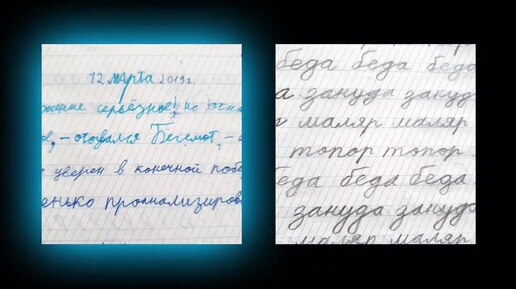 12 марта 2019г.
жение серьёзное, но отн
ое, – отозвался Бегемот, –
уверен в конечной побе
енько проанализиров
беда беда беда
а зануда зануд
маляр маляр
топор топор
беда беда беда
зануда зануда
маляр маляр